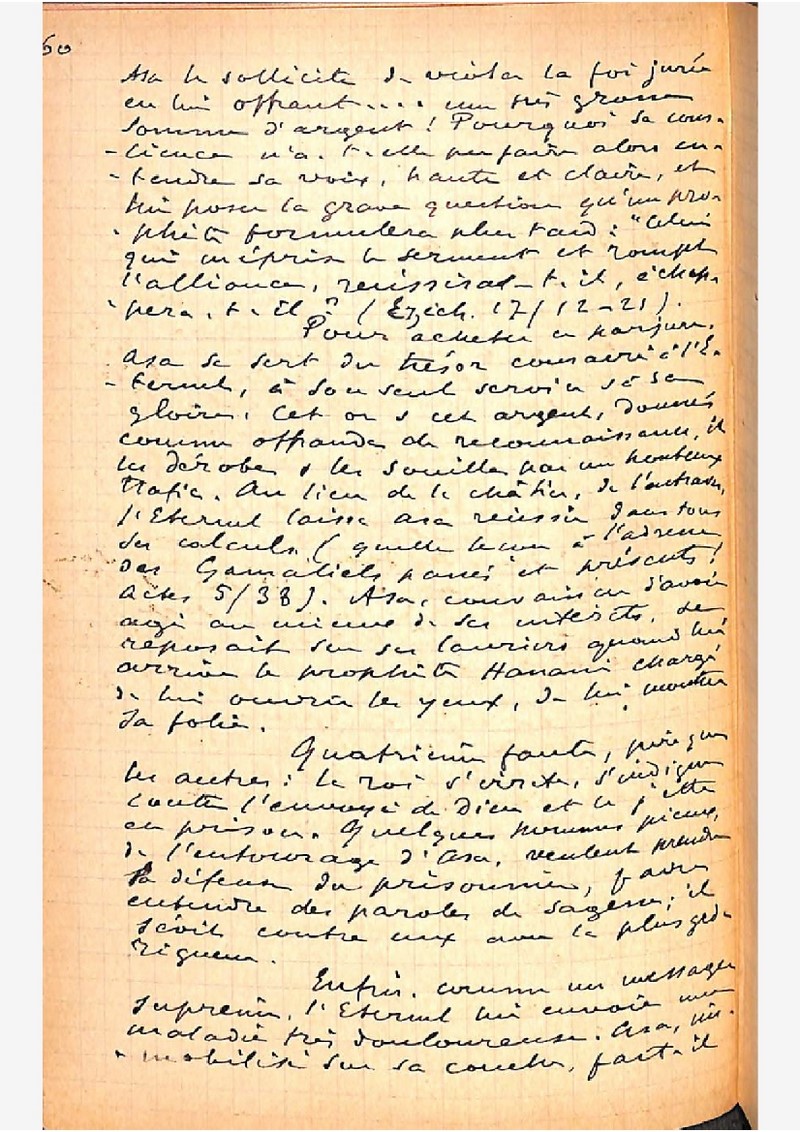 60
Asa le sollicite de violer la foi jurée
en lui offrant.... une très grosse
somme d'argent! Pourquoi sa cons-
-cience n'a-t-elle pu faire alors en-
-tendre sa voix, haute et claire, et
lui poser la grave question qu'un pro-
-phète formulera plus tard: "Celui
qui méprise le serment et rompt
l'alliance, réussirait-t-il, échap-
-pera-t-il? (Ezéch. 17/12-21).
Pour acheter ce parjure,
Asa se sert du trésor consacré à l'E-
-ternel, à son seul service & à sa
gloire. Cet or & cet argent, donnés
comme offrandes de reconnaissance, il
les dérobe & les souille par un honteux
trafic. Au lieu de le châtier, de l'entraver,
l'Eternel laisse Asa réussir dans tous
ses calculs (quelle leçon à l'adresse
des Gamaliels passés et présents!
Actes 5/38). Asa, convaincu d'avoir
agi au mieux de ses intérêts, se
reposait sur ses lauriers quand lui
arrive le prophète Hanani chargé
de lui ouvrir les yeux, de lui montrer
sa folie.
Quatrième faute, pire que
les autres: le roi s'irrite, s'indigne
contre l'envoyé de Dieu et le jette
en prison. Quelques hommes pieux,
de l'entourage d'Asa, veulent prendre
la défense du prisonnier, faire
entendre des paroles de sagesse; il
sévit contre eux avec la plus gde
rigueur.
Enfin, comme un message
suprême, l'Eternel lui envoie une
maladie très douloureuse. Asa, im-
-mobilisé sur sa couche, fait-il